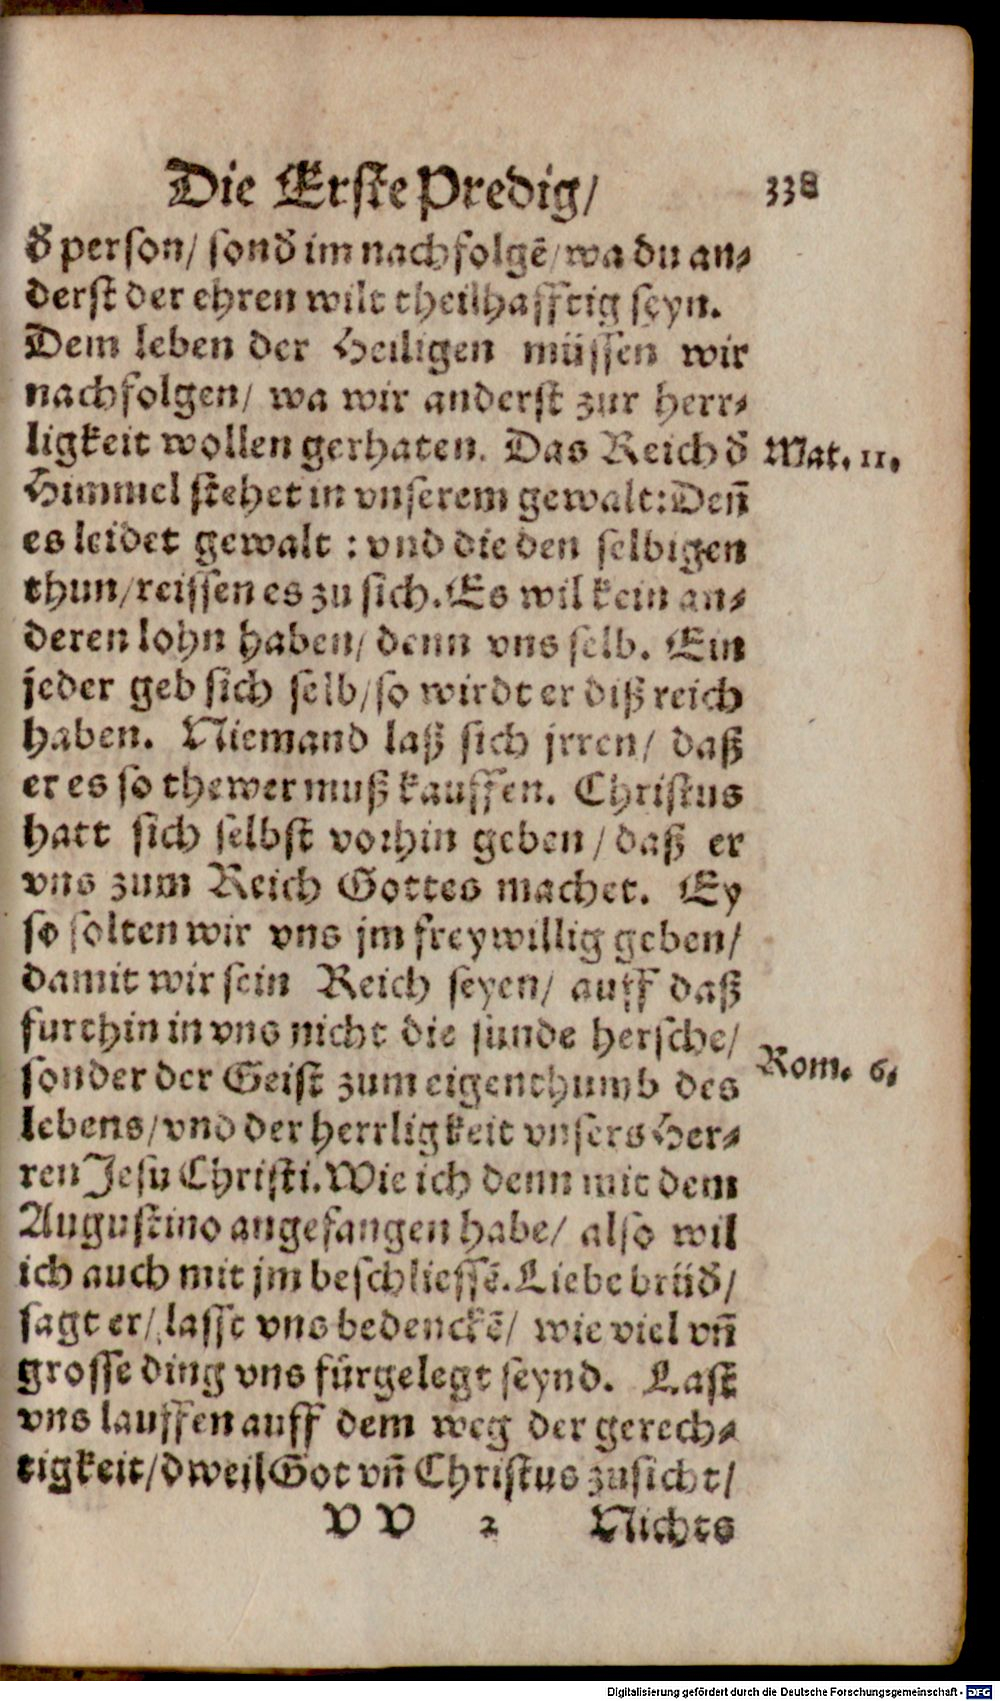 Die Erste Predig/ 338
d̄ person/ sond̄ im nachfolgē/ wa du an⸗
derst der ehren wilt theilhafftig seyn.
Dem leben der Heiligen müssen wir
nachfolgen/ wa wir anderst zur herr⸗
ligkeit wollen gerhaten. Das Reich d̄
Mat. 11.
Himmel stehet in vnserem gewalt: Deñ
es leidet gewalt : vnd die den selbigen
thun/ reissen es zu sich. Es wil kein an⸗
deren lohn haben/ denn vns selb. Ein
jeder geb sich selb/ so wirdt er diß reich
haben. Niemand laß sich jrren/ daß
er es so thewer muß kauffen. Christus
hatt sich selbst vorhin geben / daß er
vns zum Reich Gottes machet. Ey
so solten wir vns jm freywillig geben/
damit wir sein Reich seyen/ auff daß
furthin in vns nicht die sünde hersche/
Rom. 6.
sonder der Geist zum eigenthumb des
lebens/ vnd der herrligkeit vnsers Her⸗
ren Jesu Christi. Wie ich denn mit dem
Augustino angefangen habe/ also wil
ich auch mit jm beschliessē. Liebe brüd̄/
sagt er/ lasst vns bedenckē/ wie viel vñ
grosse ding vns fürgelegt seynd. Last
vns lauffen auff dem weg der gerech⸗
tigkeit/ dweil Got vñ Christus zusicht/
VV 2 Nichts
Digitalisierung gefördert durch die Deutsche Forschungsgemeinschaft - DFG